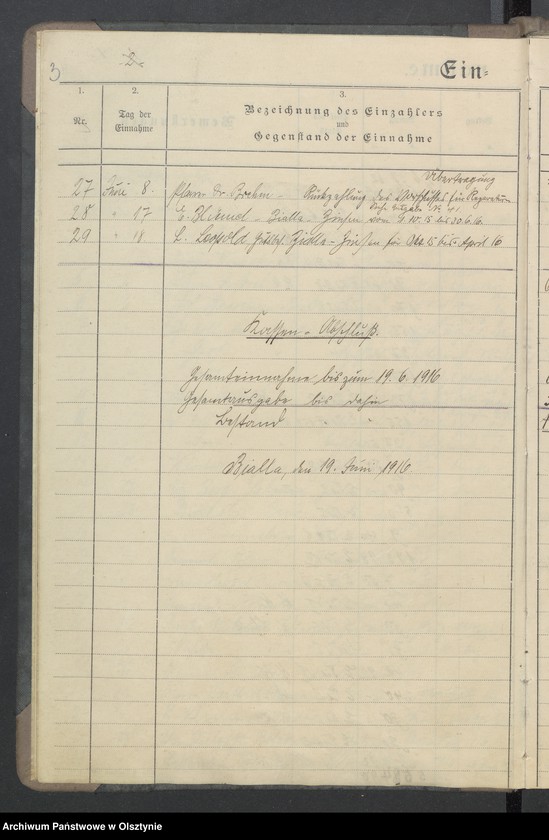 3
-2-
Ein-
1.
2.
3.
Nr.
Tag der
Einnahme
Bezeichnung des Einzahlers
und
Gegenstand der Einnahme
Übertragung
27 Juni 8. Pfarrer Dr. Brehm - Rückzahlung des für Reparatur
28 " 17 E. - Bialla - Zinsen vom 1.10.15 bis 30.6.16.
29 " 18 L. Leopold Bialla - Zinsen für 15 bis April 16
Kassen-Abschluß.
Gesamteinnahme bis zum 19.6.1916
Gesamtausgabe bis dahin
Bestand " "
Bialla, den 19. Juni 1916.
Archiwum Państwowe w Olsztynie